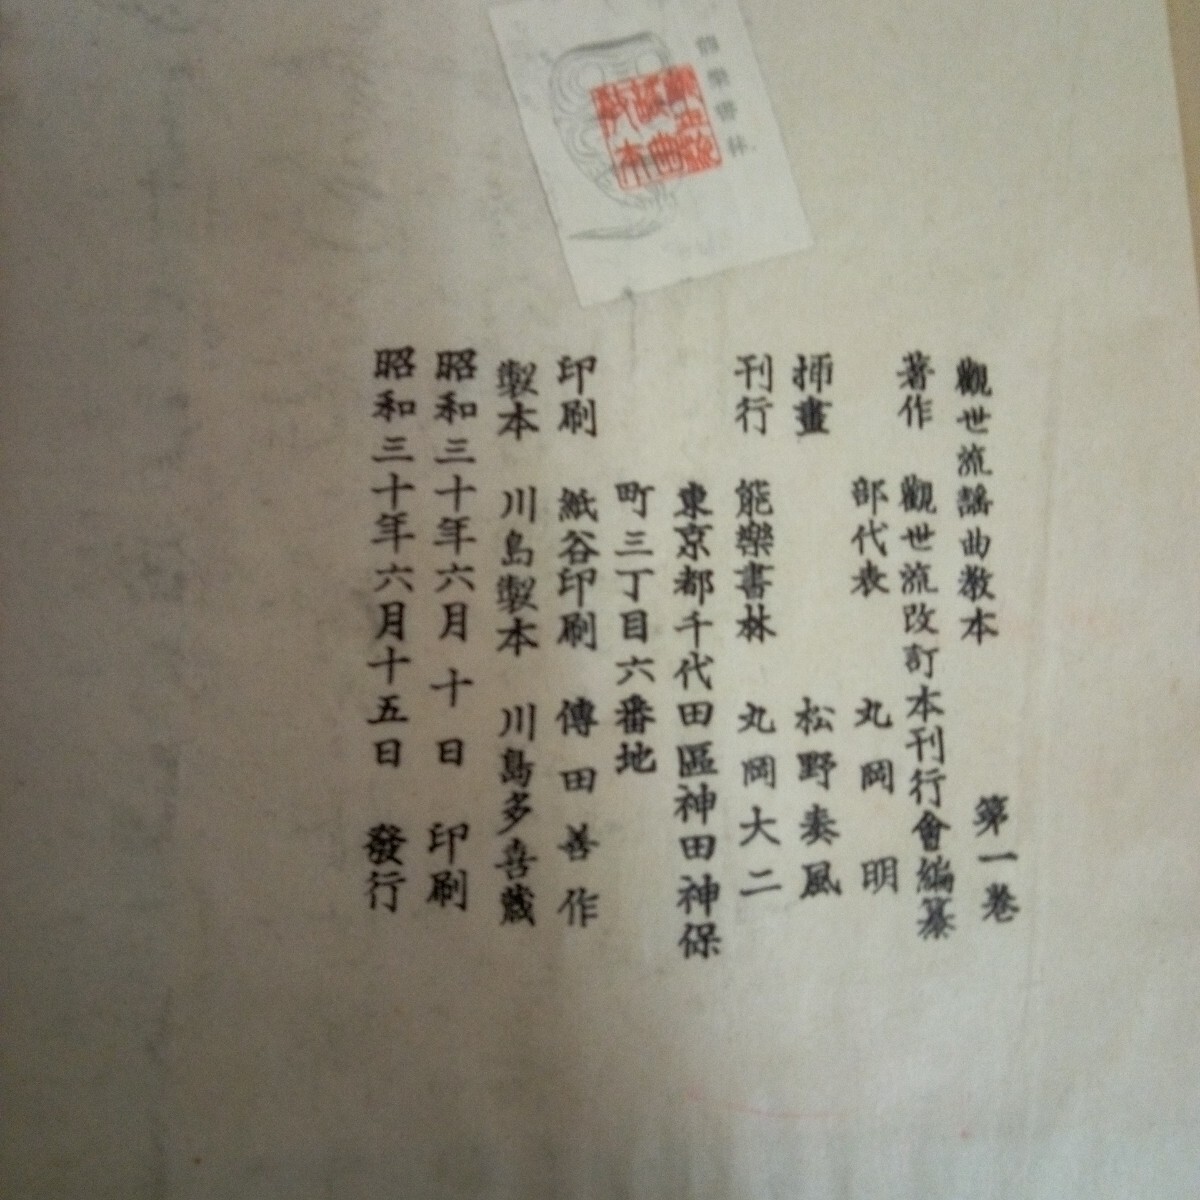 能樂書林
觀世流
謠曲
教本
觀世流謠曲教本　第一卷
著作　觀世流改訂本刊行會編纂
部代表　丸岡　明
挿畫　松野奏風
刊行　能樂書林　丸岡大二
東京都千代田區神田神保
町三丁目六番地
印刷　紙谷印刷　傳田善作
製本　川島製本　川島多喜藏
昭和三十年六月十日　印刷
昭和三十年六月十五日　發行